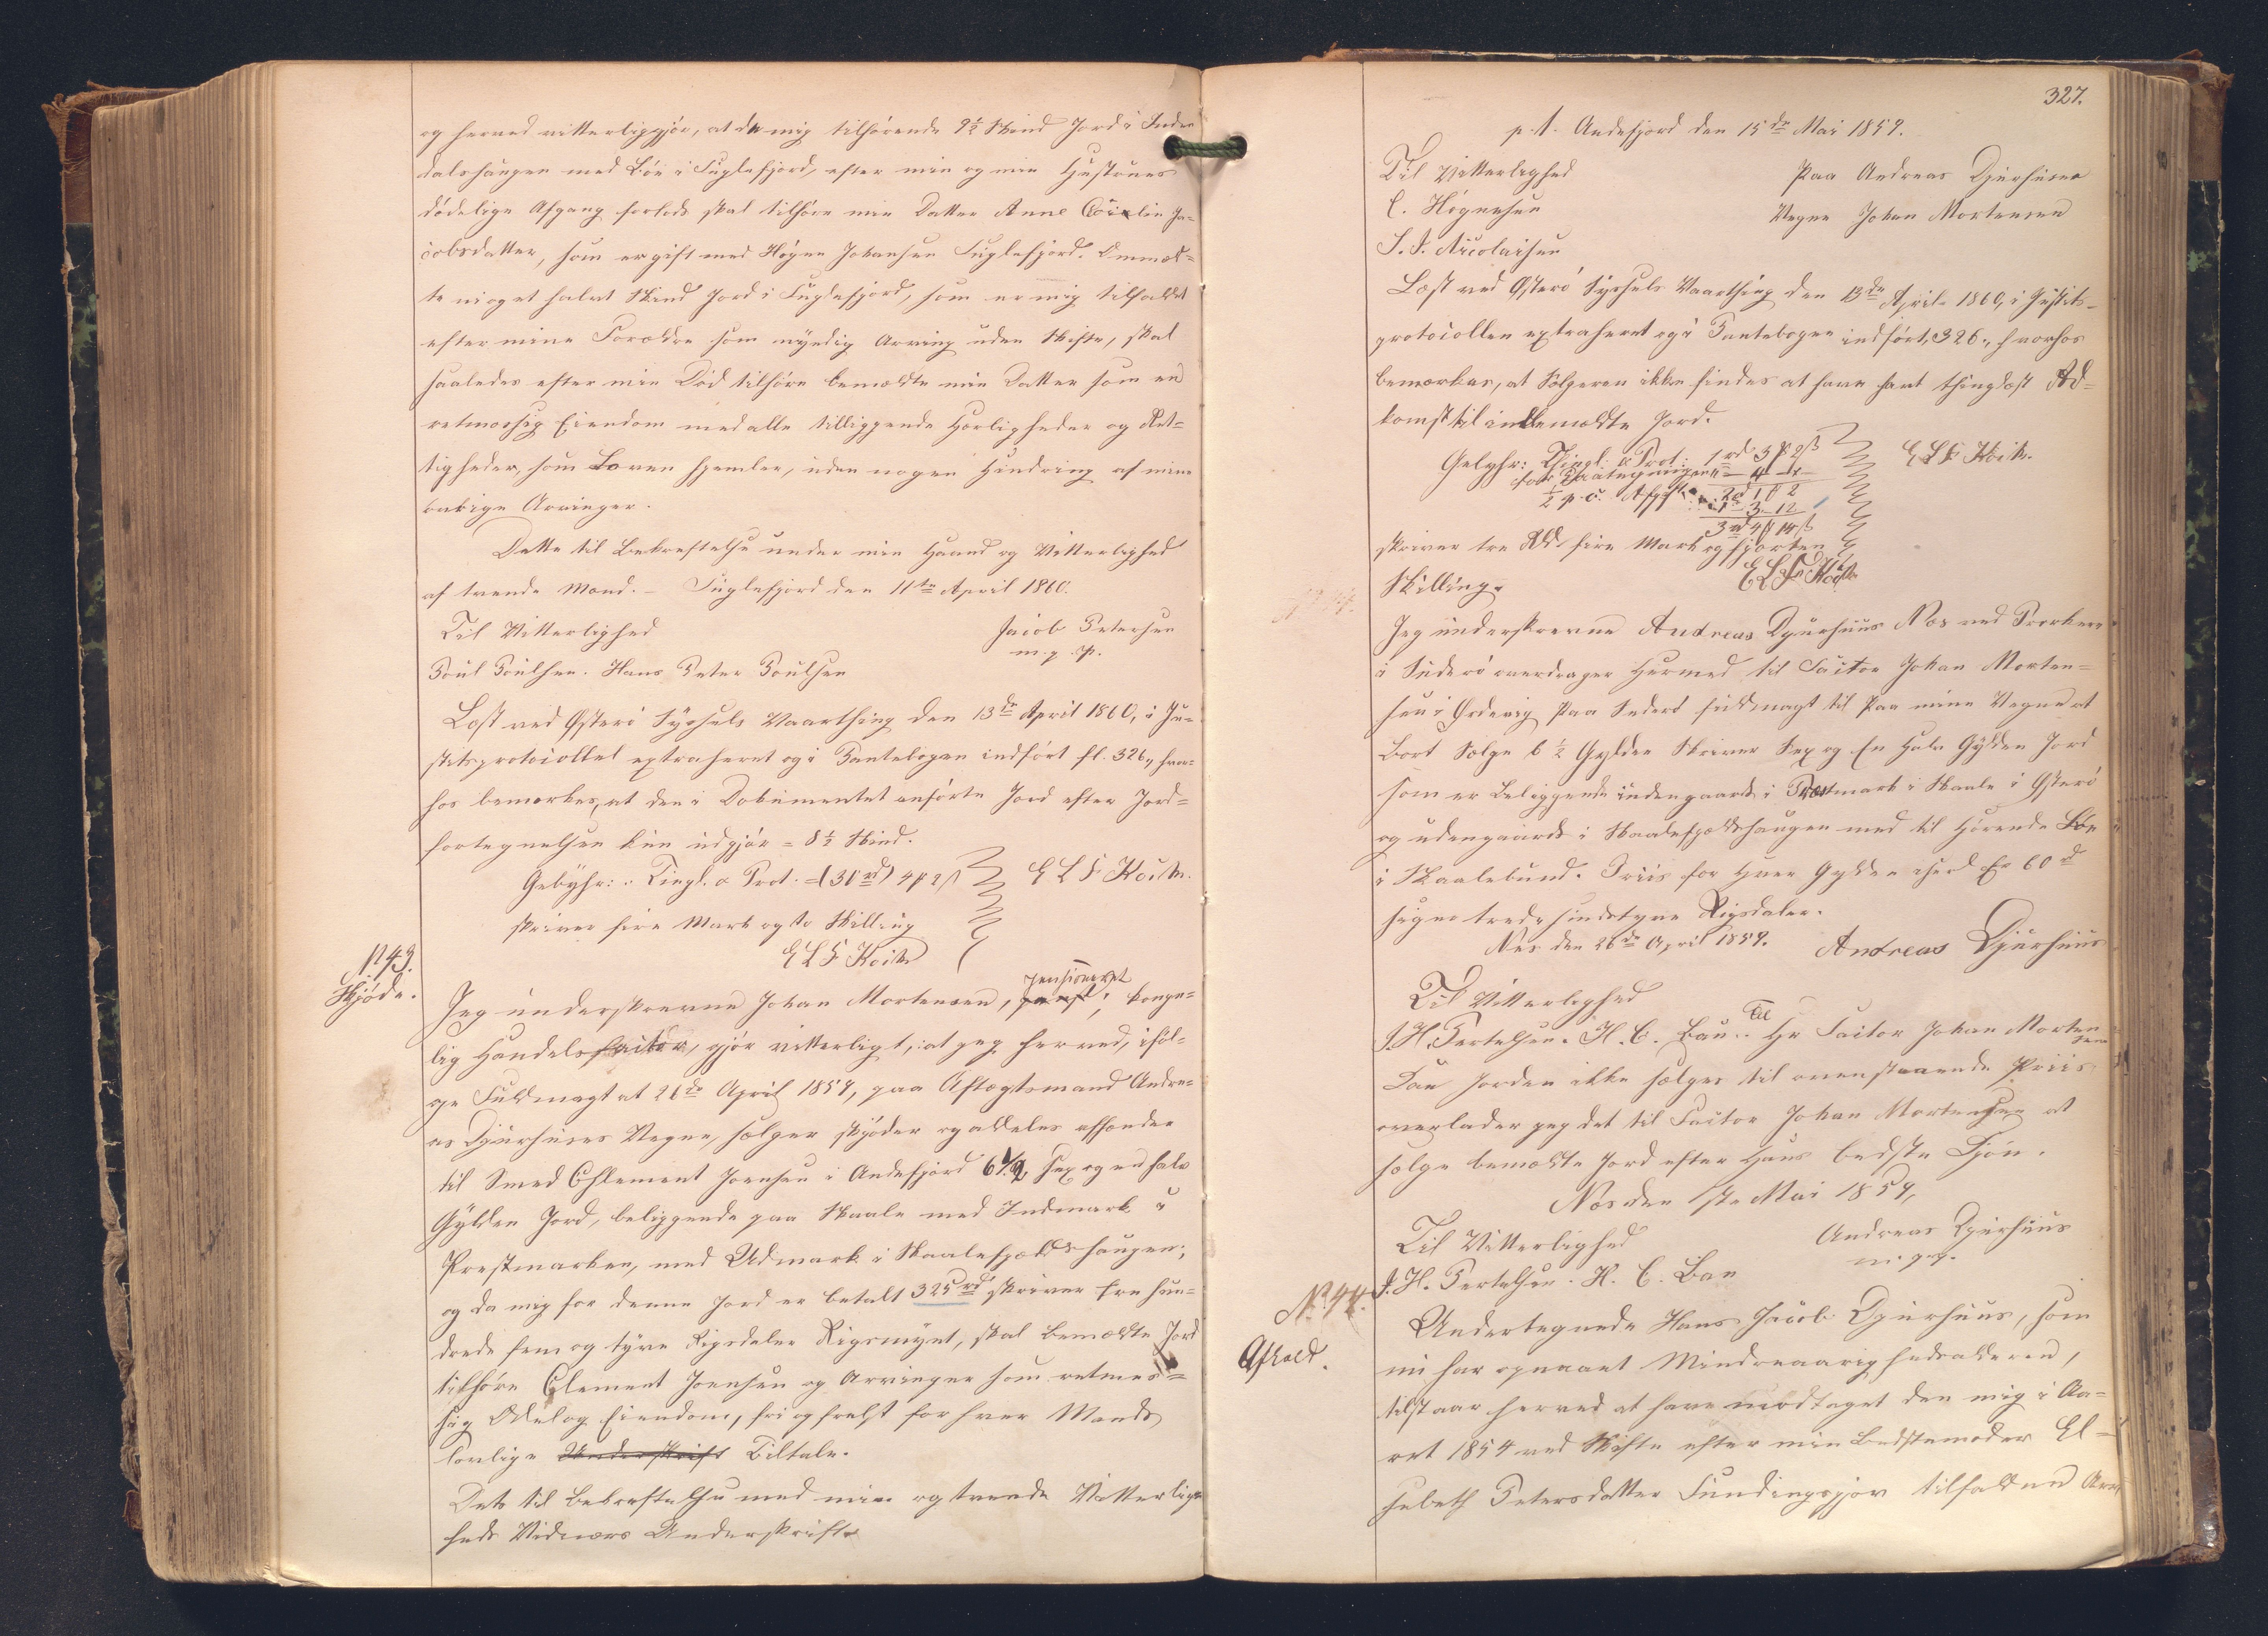 og herved vitterliggjør, at de mig tilhørende 9½ Skind Jord i Inder
dalshaugen med Løn i Fuglefjord, efter min og min Hustrues
dødelige Afgang forlods skal tilhøre min Datter Anne Ja-
cobsdatter, som er gift med Høgne Johansen Fuglefjord. Ommeld-
te ni og et halvt Skind Jord i Fuglefjord, som er mig tilfaldet
efter mine Forældre som myndig Arving uden Skifte, skal
saaledes efter min Død tilhøre bemældte min Datter som en
retmæssig Eiendom med alle tilliggende Herligheder og Ret-
tigheder, som Loven hjemler, uden nogen Hindring af mine
øvrige Arvinger.
Dette til Bekræftelse under min Haand og Vitterlighed
af tvende Mænd. – Fuglefjord den 11te April 1860.
Til Vitterlighed
Jacob Petersen
m. p. P.
Poul Poulsen. Hans Peter Poulsen
Læst ved Østerø Syssels Vaarthing den 13de April 1860, i Ju-
stitsprotocollet extraheret og i Pantebogen indført fl. 326., hvor-
hos bemærkes, at den i Dokumentet anførte Jord efter Jord-
fortegnelsen kun udgjør = 8½ Skind.
Gebyhr: Tingl. & Prot. = (31 rd) 4 ₻ 2 ß
E L F Koch.
skriver fire Mark og to Skilling
E L F Koch
No 43.
Skjøde.
pensioneret
Jeg underskrevne Johan Mortensen, konge-
lig Handelsfactor, gjør vitterligt, at jeg herved, iføl-
ge Fuldmagt at 26de April 1859, paa Aftægtsmand Andre-
as Djurhuses Vegne, sælger skjøder og aldeles afhender
til Smed Chlement Joensen i Andefjord 6 1/2 sex og en halv
Gylden Jord, beliggende paa Skaale med Indmark i
Prestmarken, med Udmark i Skaalefjeldshaugen;
og da mig for denne Jord er betalt 325 rd skriver tre hun-
drede fem og tyve Rigsdaler Rigsmynt, skal bemældte Jord
tilhøre Clement Joensen og Arvinger som retmæs-
sig Odel og Eiendom, fri og frelst for hver Mands
lovlige Underskrift Tiltale.
Dets til Bekræftelse med min og tvende Vitterlig-
heds Vidners Underskrift
327.
p. t. Andefjord den 15de Mai 1859.
Til Vitterlighed
Paa Andreas Djurhuses
C. Høgnesen
Vegne Johan Mortensen
S. J. Nicolaisen
Læst ved Østerø Syssels Vaarthing den 13de April 1860, i Justits-
protocollen extraheret og i Pantebogen indført, 326., hvorhos
bemærkes, at Sælgeren ikke findes at have havt thinglæst Ad-
komst til indbemeldte Jord.
Gebyhr: Tingl. & Prot: 1 rd 3 ₻ 2 ß
E L F Koch.
for Paategningen
½ p. c. Afgift
2 rd 1 ₻ 2
1 – 3 – 12
3 rd 4 ₻ 14 ß
skriver tre Rd. fire Mark og fjorten
Skilling.
E L F Koch
Jeg underskrevne Andreas Djurhuus Næs ved Porkere
i Suderø overdrager hermed til Factor Johan Morten-
sen i Ørdevig paa Suderø fuldmagt til paa mine Vegne at
bort Sælge 6½ Gylden skriver Sex og En halv Gylden Jord
som er beliggende indengaards i Prestmark i Skaale i Østerø
og udengaards i Skaalefjeldshaugen med til hørende Løn
i Skaalebund. Priis for hver Gylden Jord Er 60 rd
siger tredsindstyve Rigsdaler.
Nes den 26de April 1859.
Andreas Djurhuus
Til Vitterlighed
J. H. Pertelsen. H. C. Bau. Til Hr Factor Johan Morten
sen
Kan Jorden ikke sælges til ovenstaaende Priis
overlader jeg det til Factor Johan Mortensen at
sælge bemældte Jord efter Hans bedste Skjøn.
Næs den 1ste Mai 1859,
Til Vitterlighed
Andreas Djurhuus
m. p. p.
J. H. Pertelsen. H. C. Bau
No 44.
Afkald.
Undertegnede Hans Jacob Djurhuus, som
nu har opnaaet Mindreaarighedsalderen,
tilstaar herved at have modtaget den mig i Aa-
ret 1854 ved Skifte efter min Bedstemoder El-
sebeth Petersdatter Fundingsgjov tilfaldne Arv